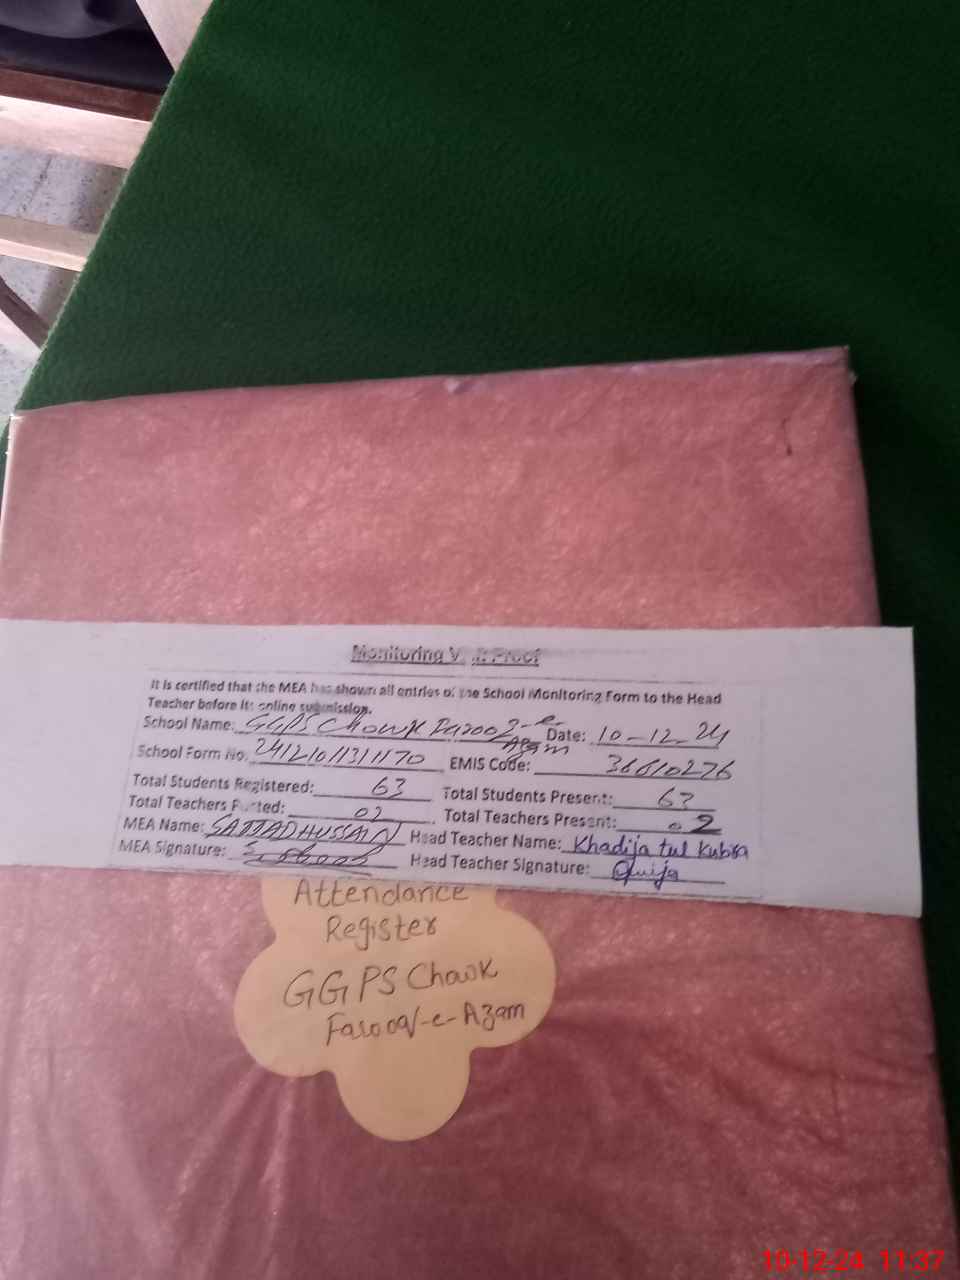 Monitoring Visit Proof
It is certified that the MEA has shown all entries of the School Monitoring Form to the Head
Teacher before its online submission.
School Name: GGPS Chowk Farooq-e-Azam Date: 10-12-24
School Form No. 24121011311170 EMIS Code: 36610276
Total Students Registered: 63 Total Students Present: 63
Total Teachers Posted: 02 Total Teachers Present: 02
MEA Name: SAJJAD HUSSAIN Head Teacher Name: Khadija tul Kubra
MEA Signature: Head Teacher Signature:
Attendance
Register
GGPS Chowk
Farooq-e-Azam
10-12-24 11:37